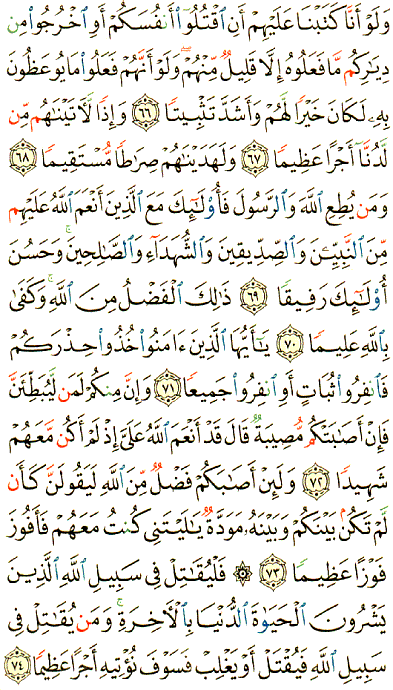 وَلَوْ أَنَّا كَتَبْنَا عَلَيْهِمْ أَنِ ٱقْتُلُوٓا۟ أَنفُسَكُمْ أَوِ ٱخْرُجُوا۟ مِن
دِيَٰرِكُم مَّا فَعَلُوهُ إِلَّا قَلِيلٌ مِّنْهُمْ ۖ وَلَوْ أَنَّهُمْ فَعَلُوا۟ مَا يُوعَظُونَ
بِهِۦ لَكَانَ خَيْرًا لَّهُمْ وَأَشَدَّ تَثْبِيتًا ٦٦ وَإِذًا لَّءَاتَيْنَٰهُم مِّن
لَّدُنَّآ أَجْرًا عَظِيمًا ٦٧ وَلَهَدَيْنَٰهُمْ صِرَٰطًا مُّسْتَقِيمًا ٦٨
وَمَن يُطِعِ ٱللَّهَ وَٱلرَّسُولَ فَأُو۟لَٰٓئِكَ مَعَ ٱلَّذِينَ أَنْعَمَ ٱللَّهُ عَلَيْهِم
مِّنَ ٱلنَّبِيِّۦنَ وَٱلصِّدِّيقِينَ وَٱلشُّهَدَآءِ وَٱلصَّٰلِحِينَ ۚ وَحَسُنَ
أُو۟لَٰٓئِكَ رَفِيقًا ٦٩ ذَٰلِكَ ٱلْفَضْلُ مِنَ ٱللَّهِ ۚ وَكَفَىٰ
بِٱللَّهِ عَلِيمًا ٧٠ يَٰٓأَيُّهَا ٱلَّذِينَ ءَامَنُوا۟ خُذُوا۟ حِذْرَكُمْ
فَٱنفِرُوا۟ ثُبَاتٍ أَوِ ٱنفِرُوا۟ جَمِيعًا ٧١ وَإِنَّ مِنكُمْ لَمَن لَّيُبَطِّئَنَّ
فَإِنْ أَصَٰبَتْكُم مُّصِيبَةٌ قَالَ قَدْ أَنْعَمَ ٱللَّهُ عَلَىَّ إِذْ لَمْ أَكُن مَّعَهُمْ
شَهِيدًا ٧٢ وَلَئِنْ أَصَٰبَكُمْ فَضْلٌ مِّنَ ٱللَّهِ لَيَقُولَنَّ كَأَن
لَّمْ تَكُنۢ بَيْنَكُمْ وَبَيْنَهُۥ مَوَدَّةٌ يَٰلَيْتَنِى كُنتُ مَعَهُمْ فَأَفُوزَ
فَوْزًا عَظِيمًا ٧٣ ۞ فَلْيُقَٰتِلْ فِى سَبِيلِ ٱللَّهِ ٱلَّذِينَ
يَشْرُونَ ٱلْحَيَوٰةَ ٱلدُّنْيَا بِٱلْءَاخِرَةِ ۚ وَمَن يُقَٰتِلْ فِى
سَبِيلِ ٱللَّهِ فَيُقْتَلْ أَوْ يَغْلِبْ فَسَوْفَ نُؤْتِيهِ أَجْرًا عَظِيمًا ٧٤